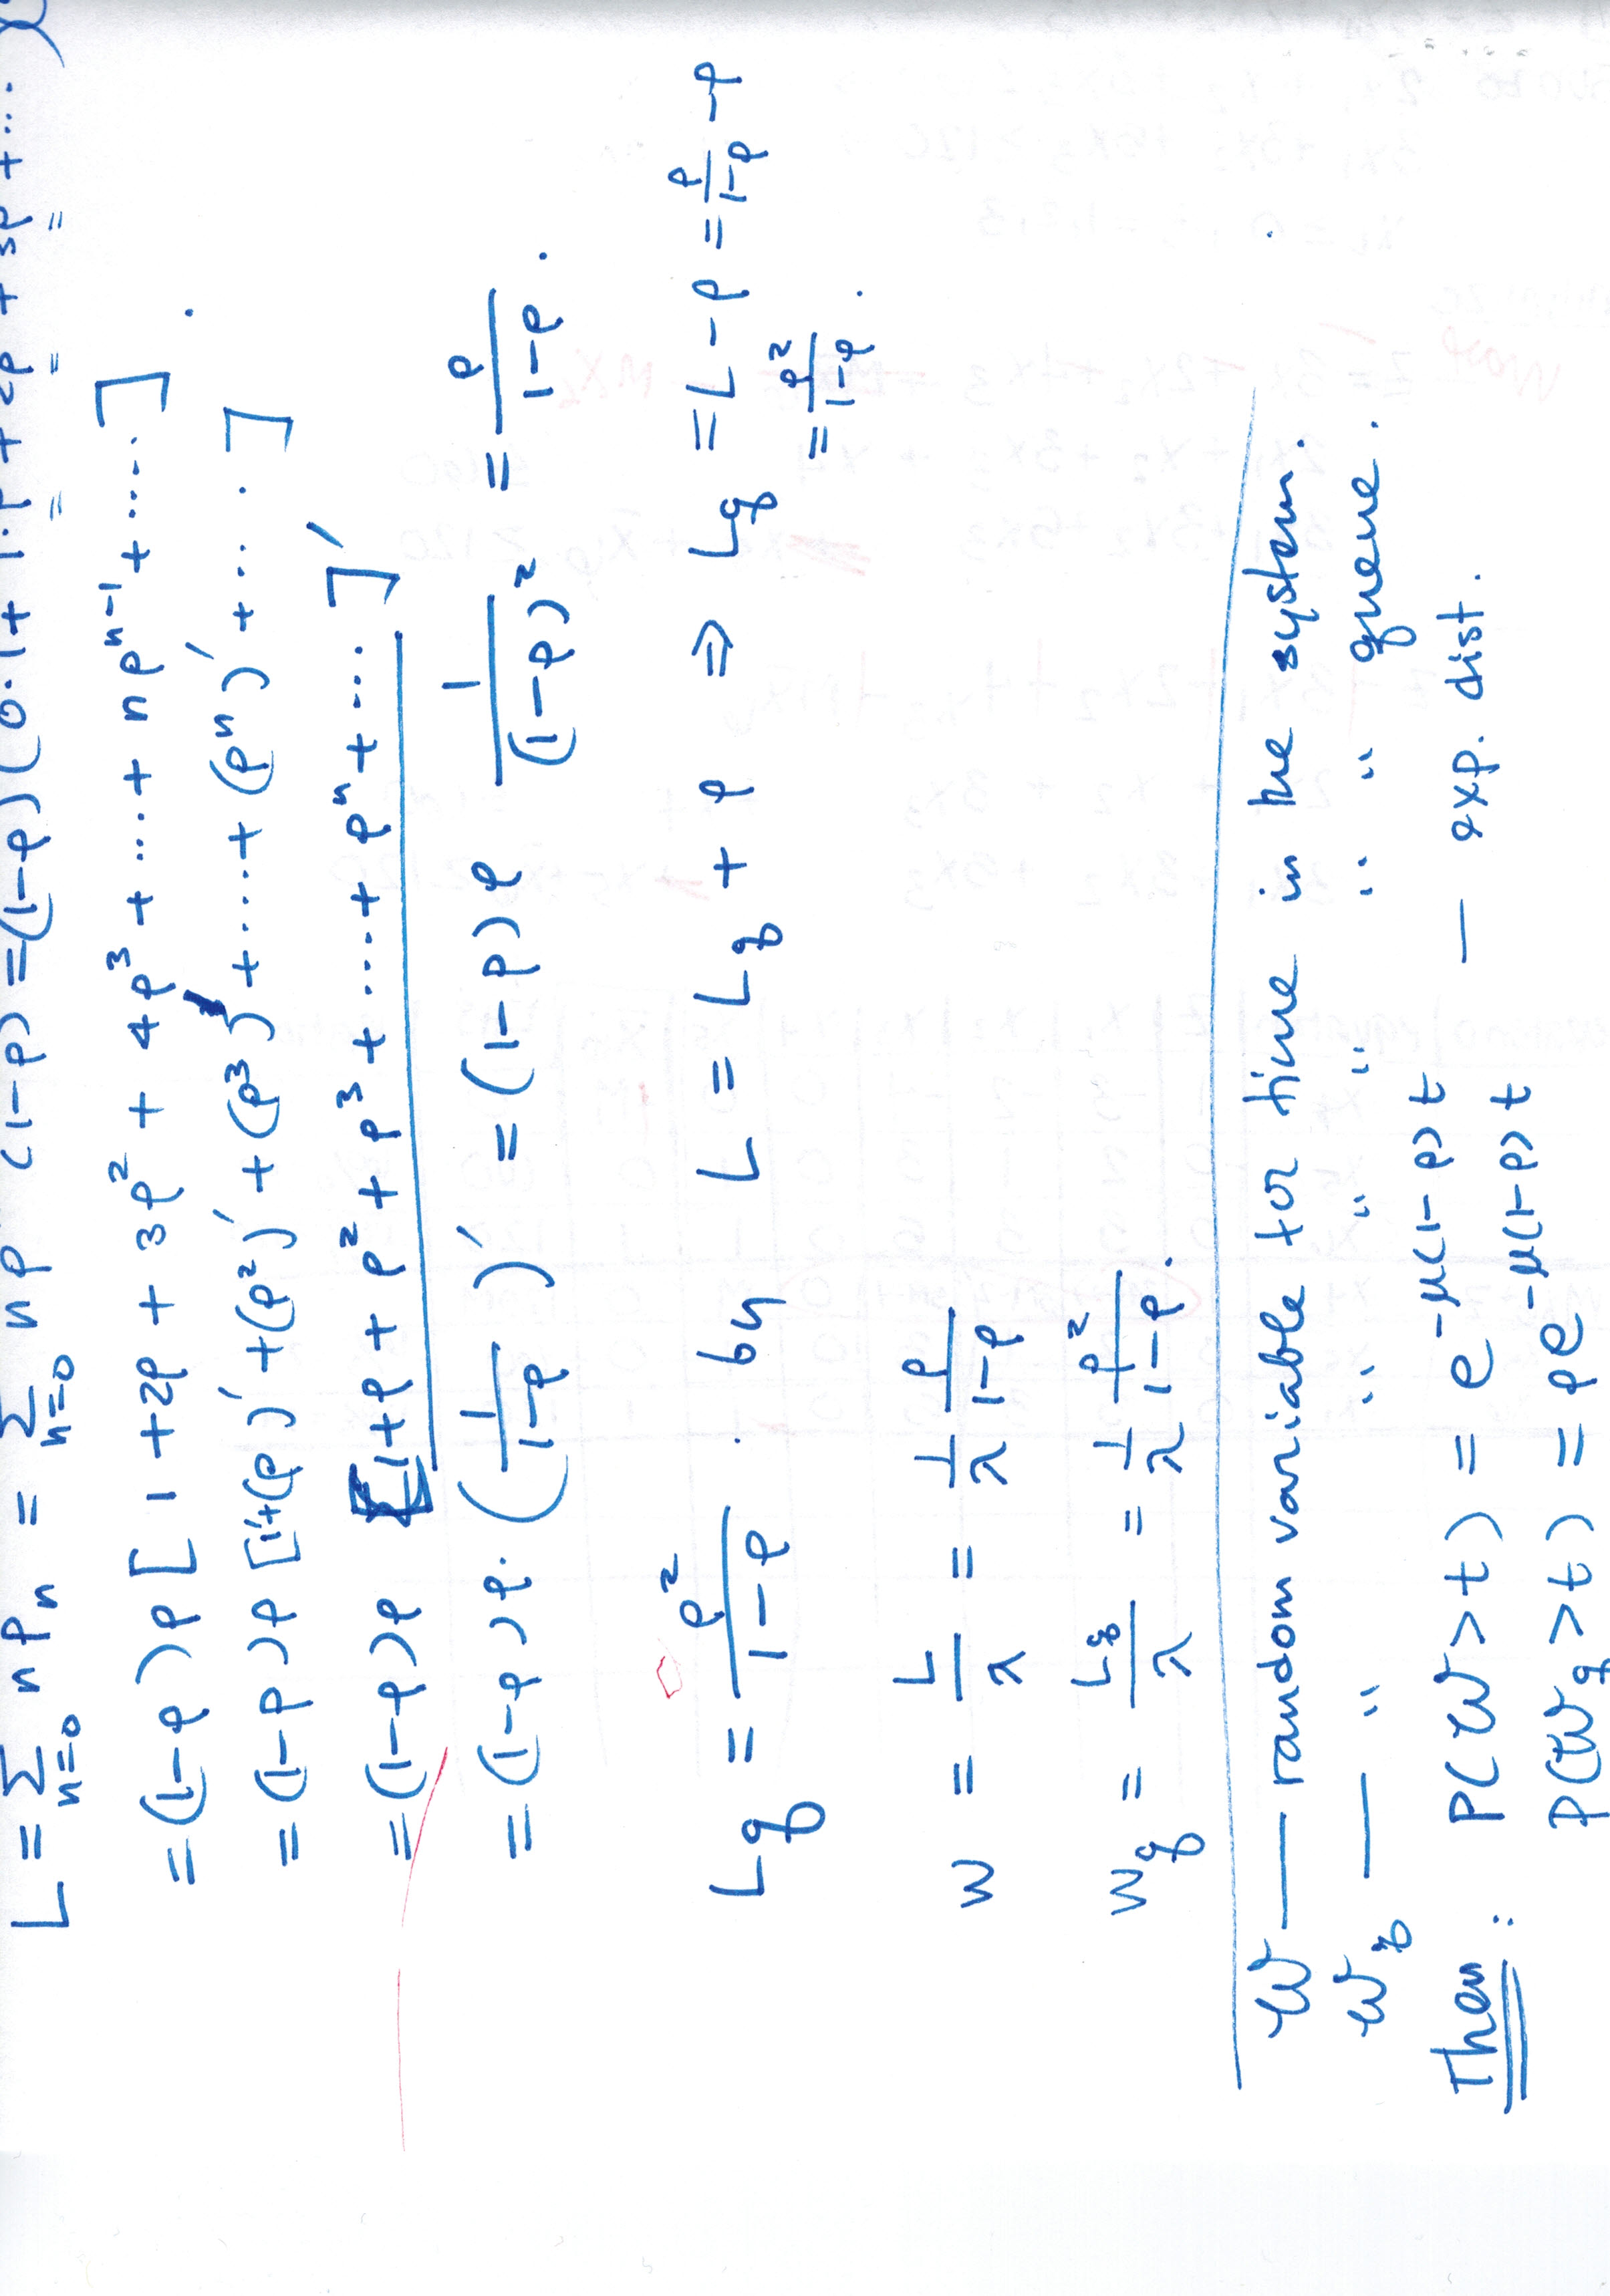 L = Σ n=0 n P n = Σ n=0 n ρ (1-ρ) = (1-ρ)(0·1 + 1·ρ + 2ρ + 3ρ + ...)
= (1-ρ)ρ [1 + 2ρ + 3ρ² + 4ρ³ + ... + nρⁿ⁻¹ + ....] .
= (1-ρ)ρ [1' + (ρ)' + (ρ²)' + (ρ³)' + .... + (ρⁿ)' + ... . ]
= (1-ρ)ρ [1 + ρ + ρ² + ρ³ + .... + ρⁿ + ....]'
= (1-ρ)ρ · (1/(1-ρ))' = (1-ρ)ρ 1/(1-ρ)² = ρ/(1-ρ) .
Lq = ρ²/(1-ρ) . by L = Lq + ρ ⇒ Lq = L - ρ = ρ/(1-ρ) - ρ
= ρ²/(1-ρ) .
W = L/λ = 1/λ ρ/(1-ρ)
Wq = Lq/λ = 1/λ ρ²/(1-ρ) .
𝒲 — random variable for time in the system.
𝒲q — " " " " " " queue.
Then : P(𝒲 > t) = e^{-μ(1-ρ)t} — exp. dist.
P(𝒲q > t) = ρe^{-μ(1-ρ)t}